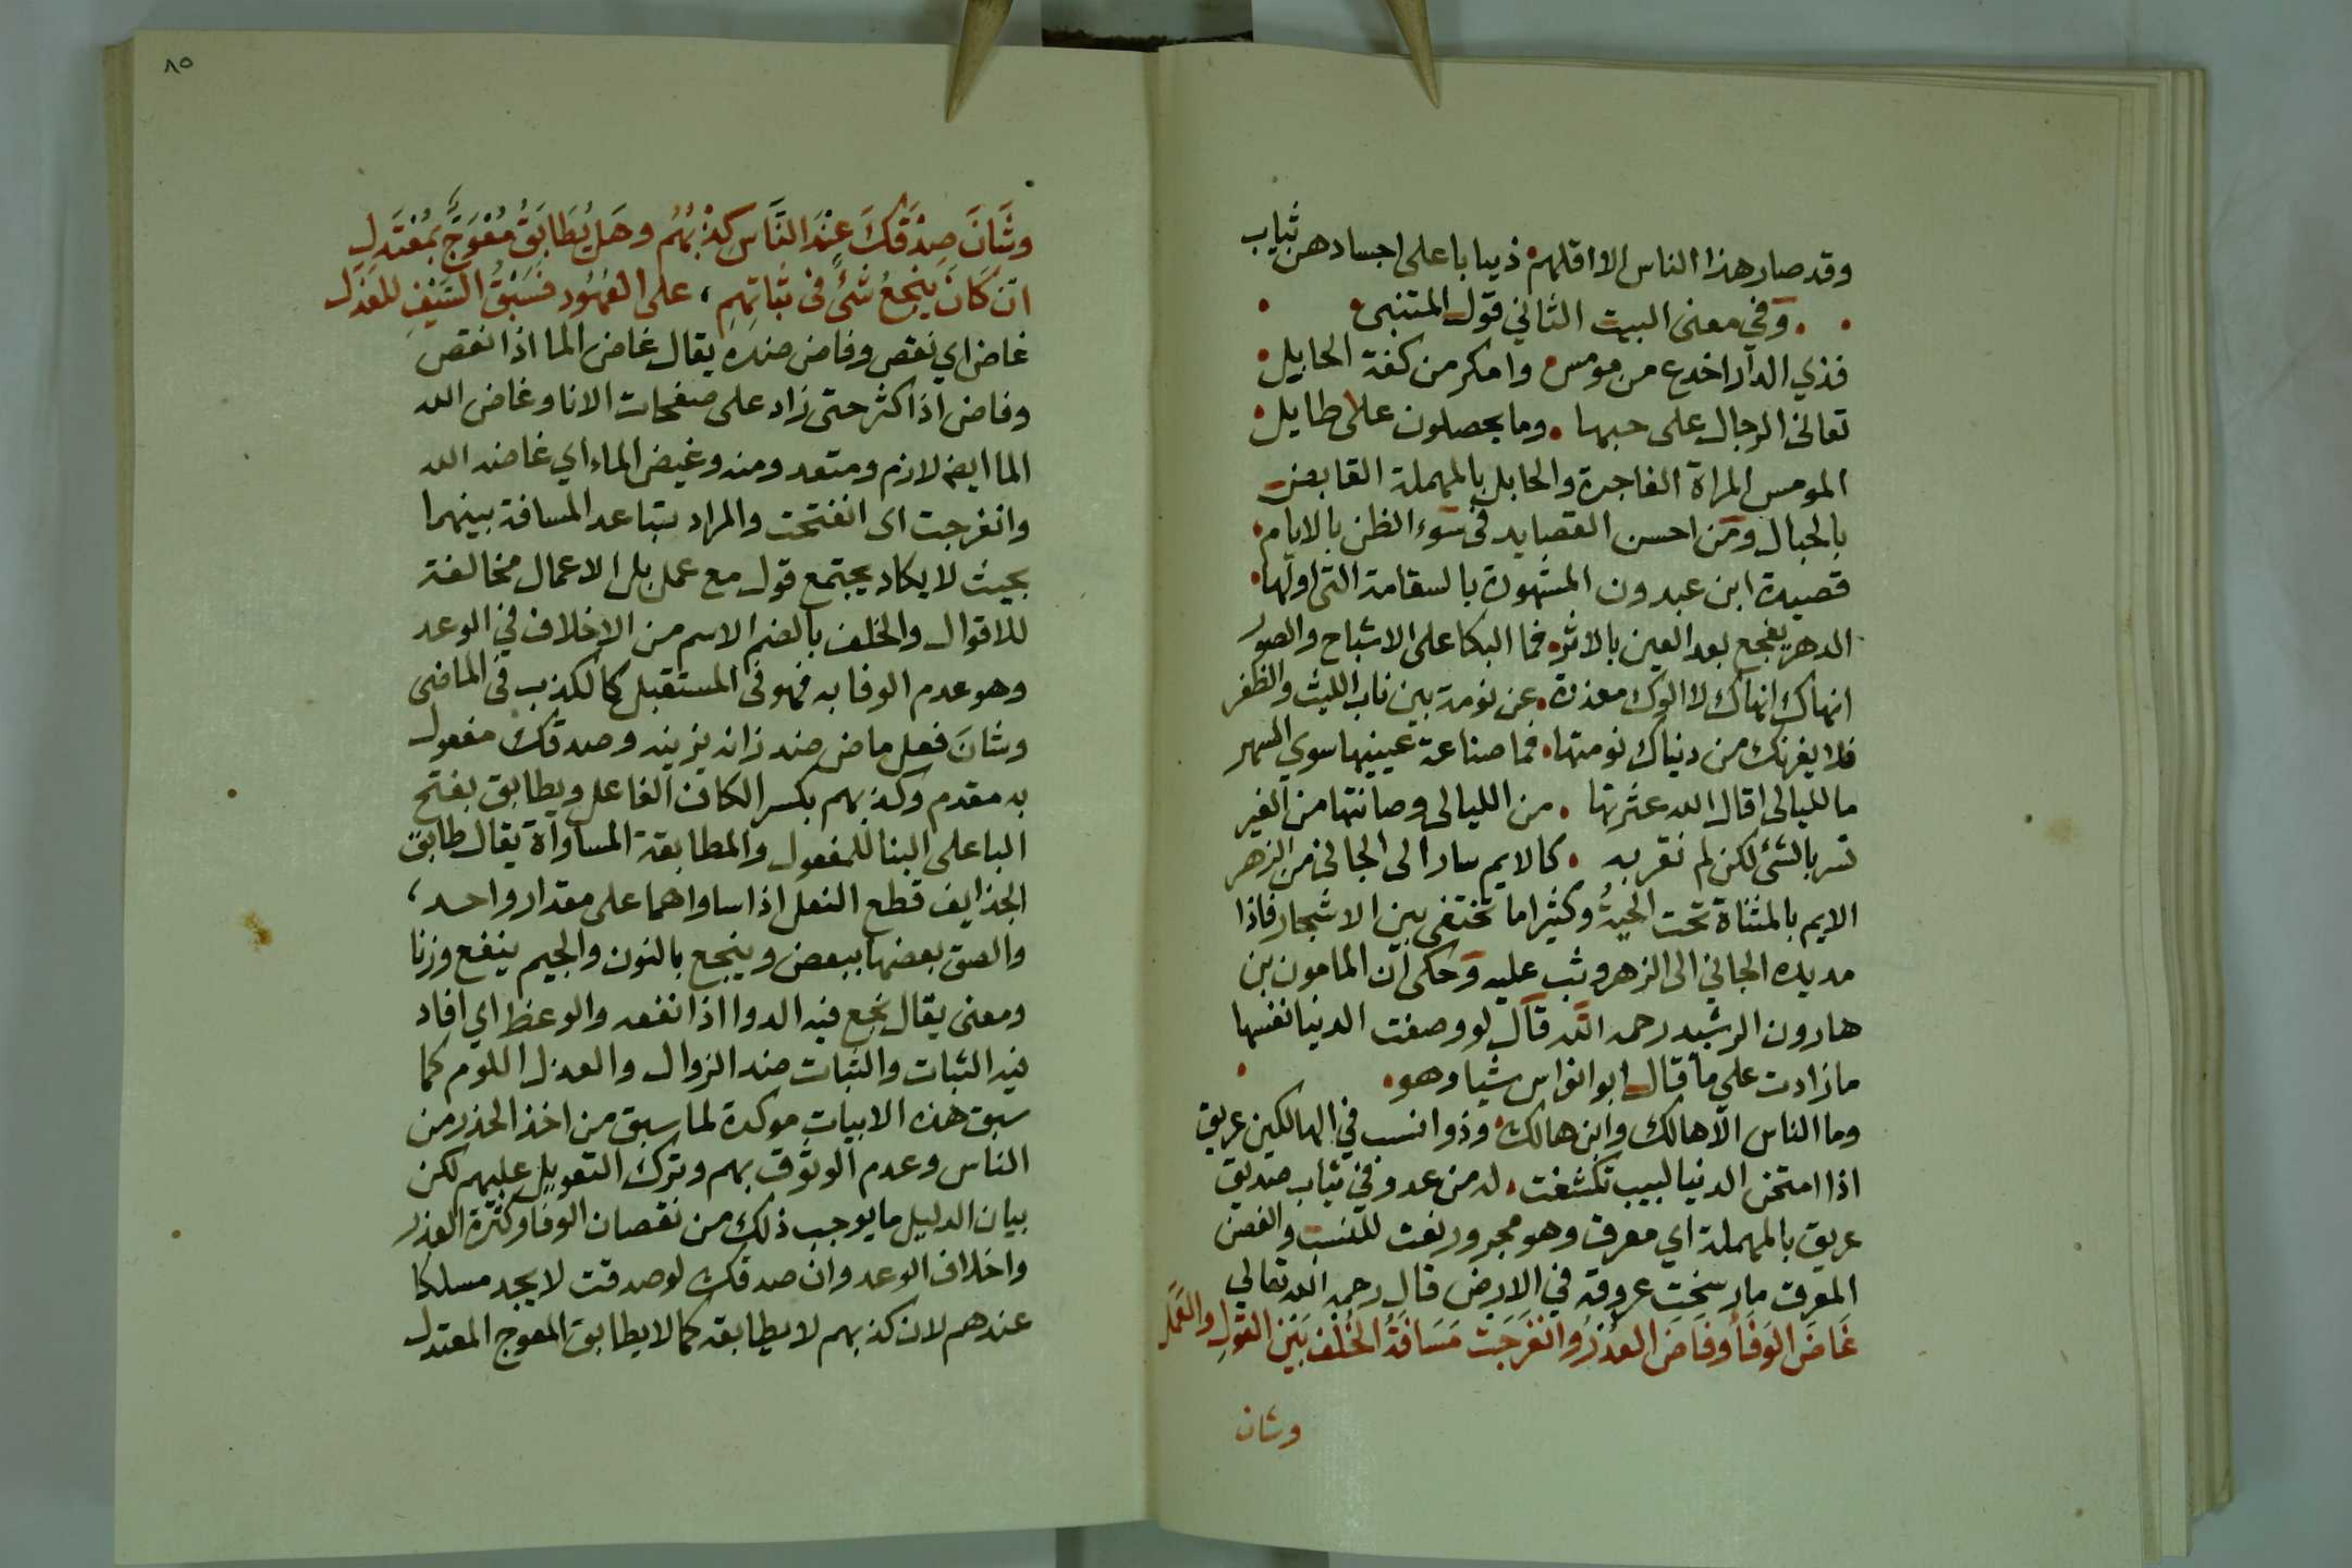 وقد صار هذا الناس الا اقلهم ذيابا على اجسادهن ثياب
وفي معنى البيت الثاني قول المتنبى
فذي الدار اخدع من مومس وامكر من كفة الحابل
تفانى الرجال على حبها وما يحصلون على طايل
المومس المراة الفاجرة والحابل بالمهملة القابض
بالحبال ومن احسن القصايد في سوء الظن بالايام
قصيدة ابن عبدون المشهورة بالسقامة التي اولها
الدهر يفجع بعد العين بالاثر فما البكا على الاشباح والصور
انهاك انهاك لا الوك معذرة عن نومة بين ناب الليث والظفر
فلا يغرنك من دنياك نومتها فما صناعة عينيها سوي السهر
ما لليالى اقال الله عثرتها من الليالى وصانتها من الغير
تسر بالشئ لكن لم تغر به كالايم سار الى الجانى من الزهر
الايم بالمثناة تحت الحية وكثيرا ما تختفي بين الاشجار فاذا
مد يده الجاني الى الزهر وثب عليه وحكى ان المامون بن
هارون الرشيد رحمه الله قال لو وصفت الدنيا نفسها
ما زادت على ما قال ابو انواس شيا وهو
وما الناس الا هالك وابن هالك وذوا نسب في الهالكين عريق
اذا امتحن الدنيا لبيب تكشفت له من عدو في ثياب صديق
عريق بالمهملة اي معرق وهو مجرور نعت للنسب والغصن
المعرق ما رسخت عروقه في الارض قال رحمه الله تعالي
غَاضَ الوَفَأ وفَاضَ الغدْرُ وانفَرَجَت مَسَافَةُ الخُلْفِ بَيْنَ القَولِ والعَمَل
وشان
٨٥
وشَانَ صِدْقَكَ عِنْدَ النَّاس كِذْبُهُم وهَل يُطَابَقُ مُعْوَجٌّ بمُعْتَدل
ان كَانَ يَنجَعُ شَئٌ فى ثَبَاتِهِم، على العُهُود فَسَبْقُ السَّيْفِ للعَذَل
غاض اي نقص وفاض ضده يقال غاض الما اذا نقص
وفاض اذا كثر حتى زاد على صفحات الانا وغاض الله
الما ايض لازم ومتعد ومنه وغيض الماء اي غاضه الله
وانفرجت اى انفتحت والمراد بتباعد المسافة بينهما
بحيث لا يكاد يجتمع قول مع عمل بل الاعمال مخالفة
للاقوال والخلف بالضم الاسم من الاخلاف في الوعد
وهو عدم الوفا به فهو في المستقبل كالكذب في الماضى
وشانَ فعل ماض ضد زانه يزينه وصدقك مفعول
به مقدم وكذبهم بكسر الكاف الفاعل ويطابق بفتح
البا على البنا للمفعول والمطابقة المساواة يقال طابق
الجذا يف قطع النعل اذا ساواهما على مقدار واحد،
والصق بعضها ببعض وينجع بالنون والجيم ينفع وزنا
ومعنى يقال نجع فيه الدوا اذا نفعه والوعظ اي افاد
فيه الثبات والثبات ضد الزوال والعذل اللوم كما
سبق هذه الابيات موكدة لما سبق من اخذ الحذر من
الناس وعدم الوثوق بهم وترك التعويل عليهم لكن
بيان الدليل ما يوجب ذلك من نقصان الوفا وكثرة الغدر
واخلاف الوعد وان صدقك لو صدقت لا يجد مسلكا
عندهم لان كذبهم لا يطابقه كما لا يطابق المعوج المعتدل